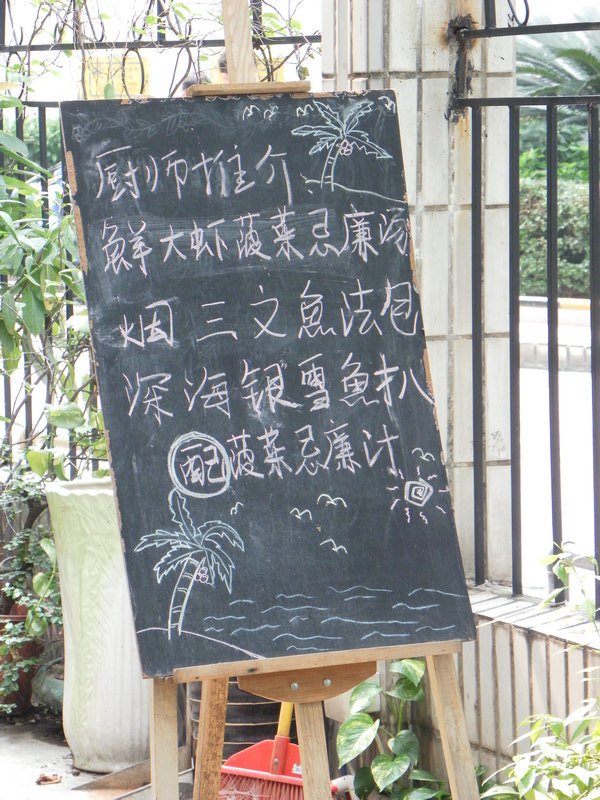 厨师推介
鮮大虾菠菜忌廉汤
烟三文魚法包
深海银雪魚扒
配菠菜忌廉汁